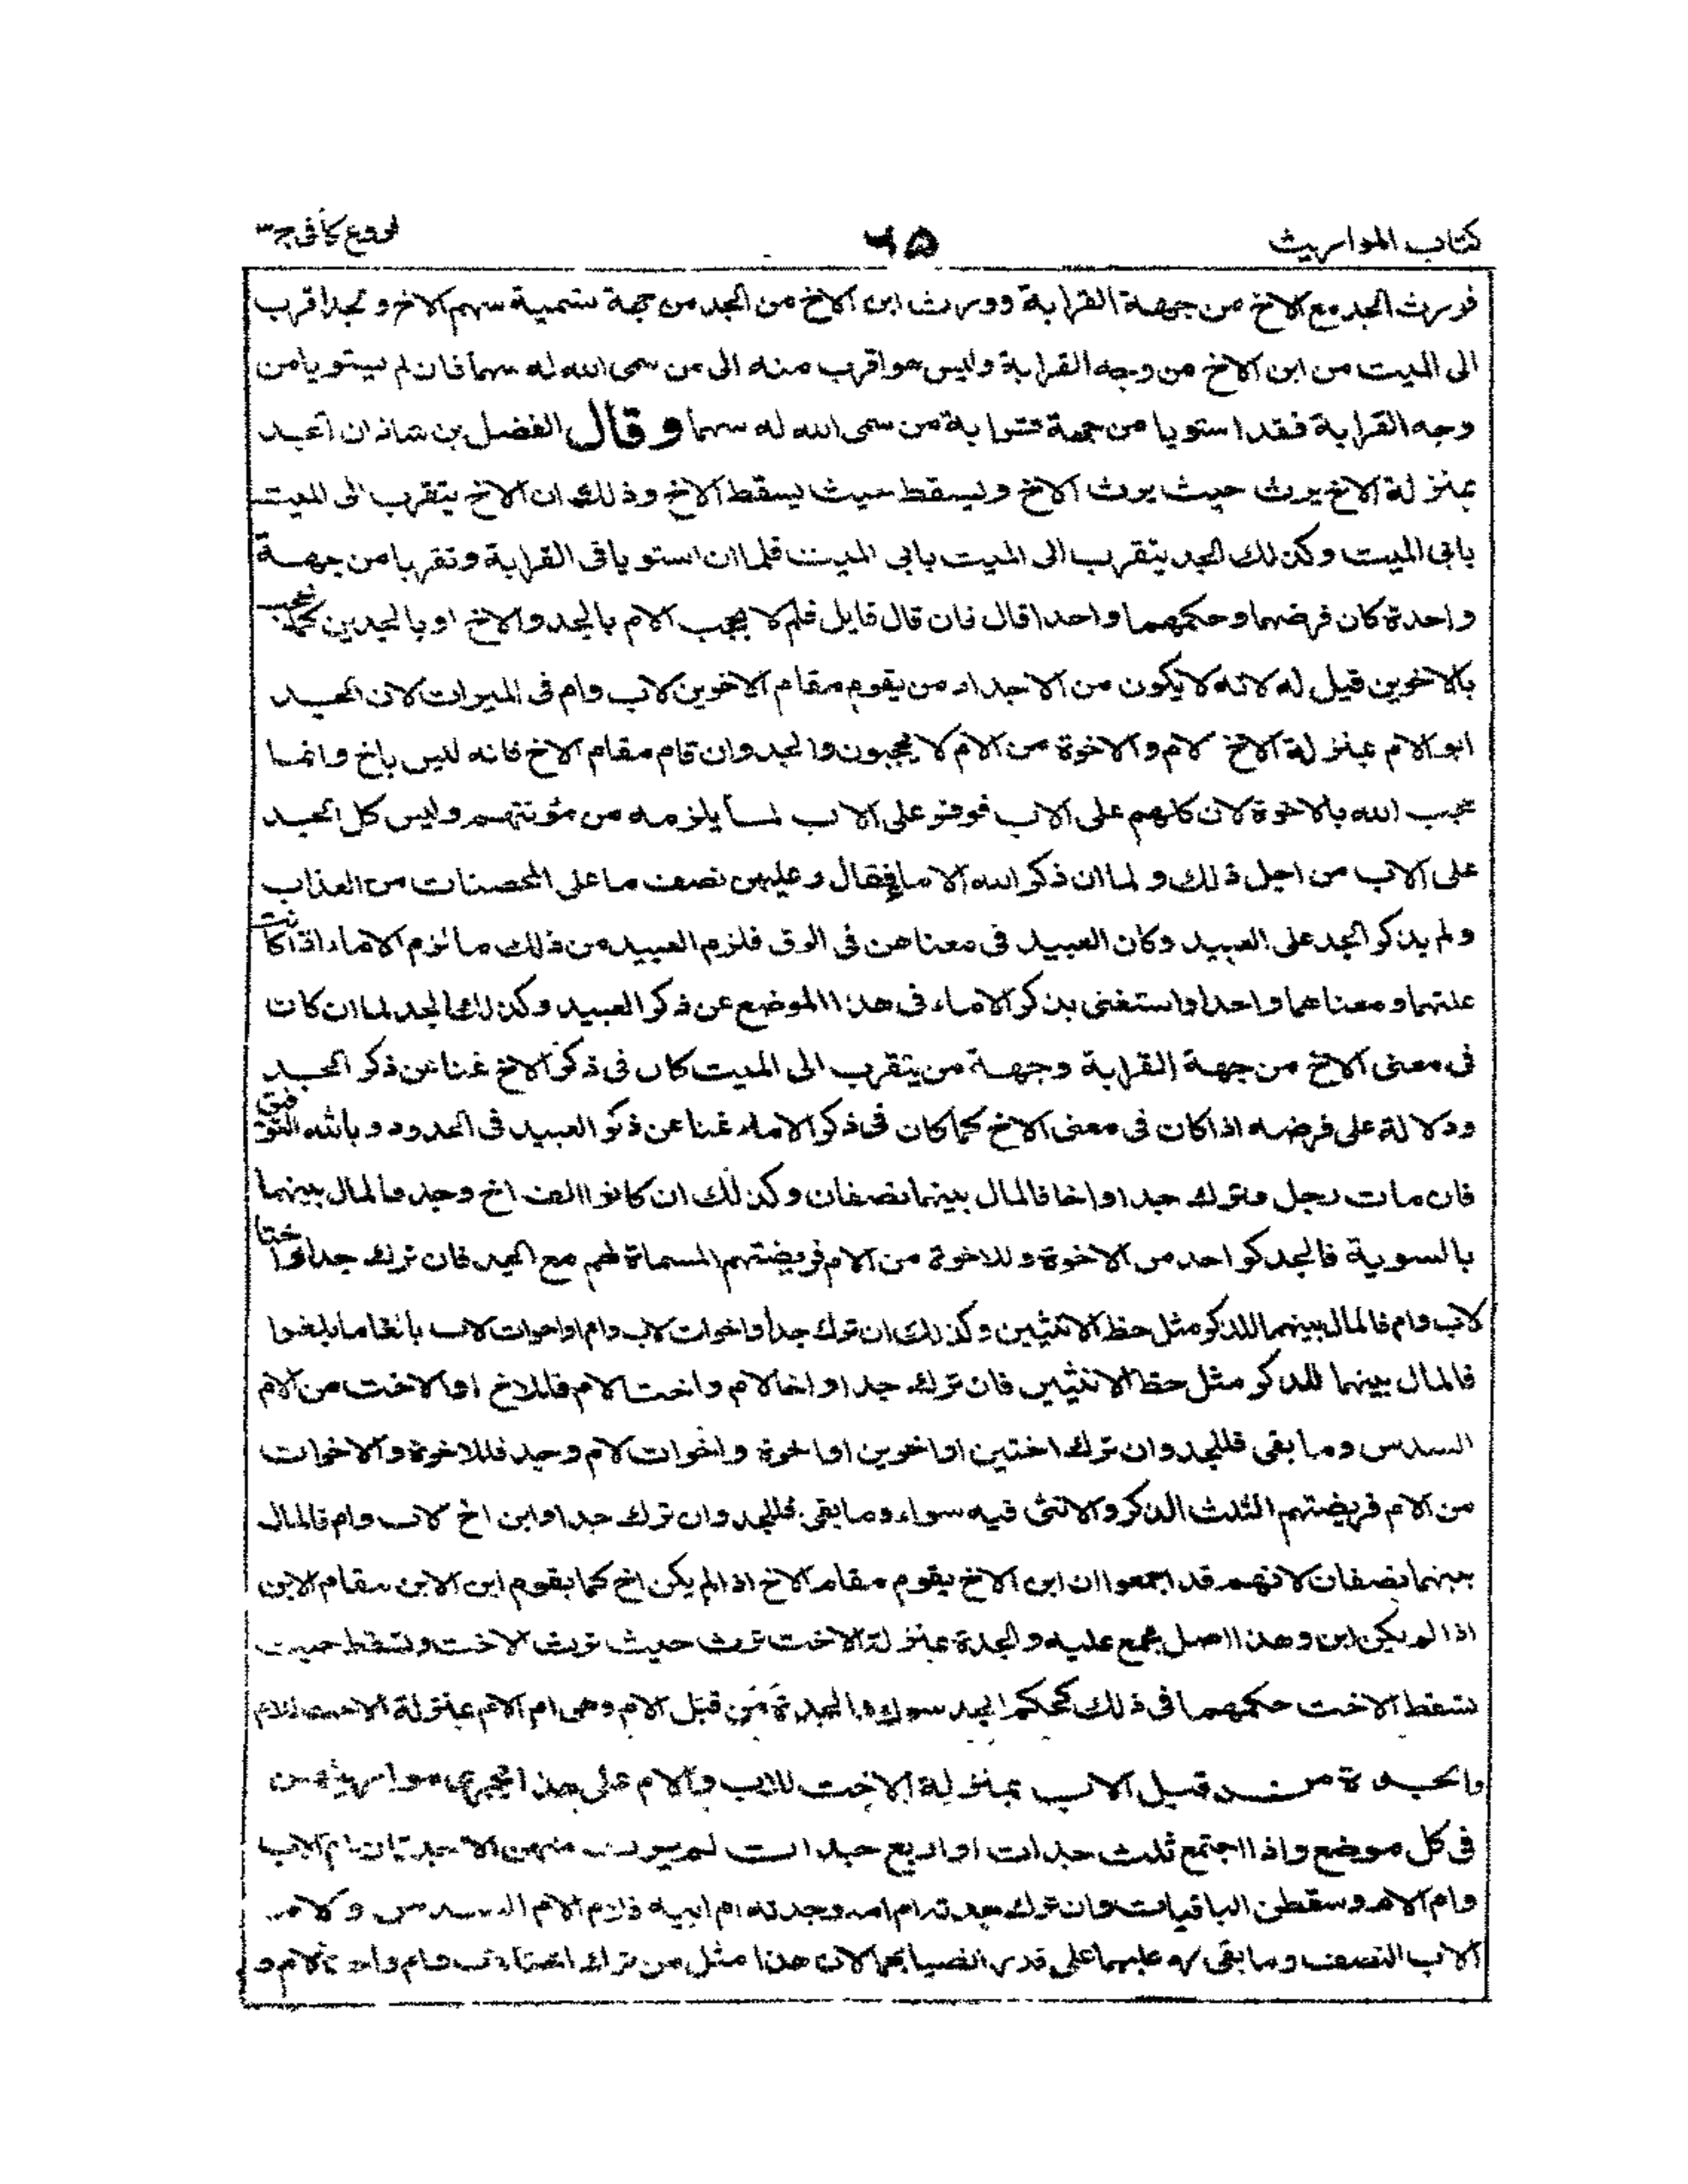 كتاب المواريث ٦٥ فروع كافى ج٣
فورث الجد مع الاخ من جهة القرابة وورث ابن الاخ من الجد من جهة تسمية سهم الاخ و الجد اقرب
الى الميت من ابن الاخ من وجه القرابة وليس هو اقرب منه الى من سمى الله له سهما فان لم يستويا من
وجه القرابة فقد استويا من جهة قرابة من سمى الله له سهما وقال الفضل بن شاذان الجد
بمنزلة الاخ يرث حيث يرث الاخ ويسقط حيث يسقط الاخ وذلك ان الاخ يتقرب الى الميت
بابى الميت وكذلك الجد يتقرب الى الميت بابى الميت فلما ان استويا فى القرابة وتقربا من جهة
واحدة كان فرضهما وحكمهما واحدا قال فان قال قايل فلم لا يحجب الام بالجد والاخ او بالجدين كما تحجب
بالاخوين قيل له لانه لا يكون من الاجداد من يقوم مقام الاخوين لاب وام فى الميراث لان الجد
ابو الام بمنزلة الاخ لام والاخوة من الام لا يحجبون والجد وان قام مقام الاخ فانه ليس باخ وانما
حجب الله بالاخوة لان كلهم على الاب فوفر على الاب لما يلزمه من مؤنتهم وليس كل الجد
على الاب من اجل ذلك و لما ان ذكر الله الاماء فقال وعليهن نصف ما على المحصنات من العذاب
ولم يذكر الحد على العبيد وكان العبيد فى معناهن فى الرق فلزم العبيد من ذلك ما لزم الاماء اذا كانت
علتهما ومعناهما واحدا واستغنى بذكر الاماء فى هذا الموضع عن ذكر العبيد وكذلك الجد لما ان كان
فى معنى الاخ من جهة القرابة وجهة من يتقرب الى الميت كان فى ذكر الاخ غنا عن ذكر الجد
ودلالة على فرضه اذا كان فى معنى الاخ كما كان فى ذكر الاماء غنا عن ذكر العبيد فى الحدود وبالله التوفيق
فان مات رجل وترك جدا واخا فالمال بينهما نصفان وكذلك ان كانوا الف اخ وجد فالمال بينهما
بالسوية فالجد كواحد من الاخوة وللاخوة من الام فريضتهم المسماة لهم مع الجد فان ترك جدا واختا
لاب وام فالمال بينهما للذكر مثل حظ الانثيين وكذلك ان ترك جدا واخوات لاب وام او اخوات لاب بالغا ما بلغوا
فالمال بينهما للذكر مثل حظ الانثيين فان ترك جدا واخا لام واخت لام فللاخ او الاخت من الام
السدس وما بقى فللجد وان ترك اختين او اخوين او اخوة واخوات لام وجد فللاخوة والاخوات
من الام فريضتهم الثلث الذكر والانثى فيه سواء وما بقى فللجد وان ترك جدا وابن اخ لاب وام فالمال
بينهما نصفان لانهم قد اجمعوا ان ابن الاخ يقوم مقام الاخ اذا لم يكن اخ كما يقوم ابن الابن مقام الابن
اذا لم يكن ابن وهذا اصل مجمع عليه والجدة بمنزلة الاخت ترث حيث ترث الاخت وتسقط حيث
تسقط الاخت حكمهما فى ذلك كحكم الجد سواء والجدة من قبل الام وهى ام الام بمنزلة الاخت للام
والجدة من قبل الاب بمنزلة الاخت للاب والام على هذا تجرى مواريثهن
فى كل موضع واذا اجتمع ثلث جدات او اربع جدات لم يرث منهن الا جدتان ام الاب
وام الام وسقطن الباقيات وان ترك جدته ام امه وجدته ام ابيه فلام الام السدس ولام
الاب النصف وما بقى رد عليهما على قدر انصبائهما لان هذا مثل من ترك اختا لاب وام واخت لام و